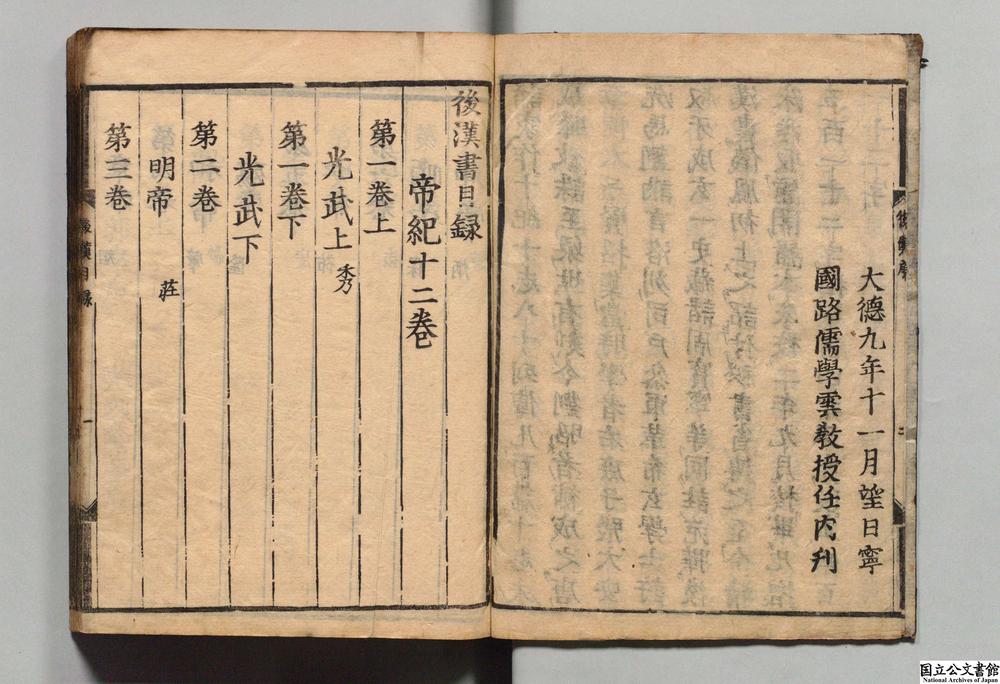 大德九年十一月望日寧
國路儒學雲教授任内刋
後漢書目録
帝紀十二卷
第一卷上
光武上 秀
第一卷下
光武下
第二卷
明帝 莊
第三卷
後漢目録
一
国立公文書館
National Archives of Japan